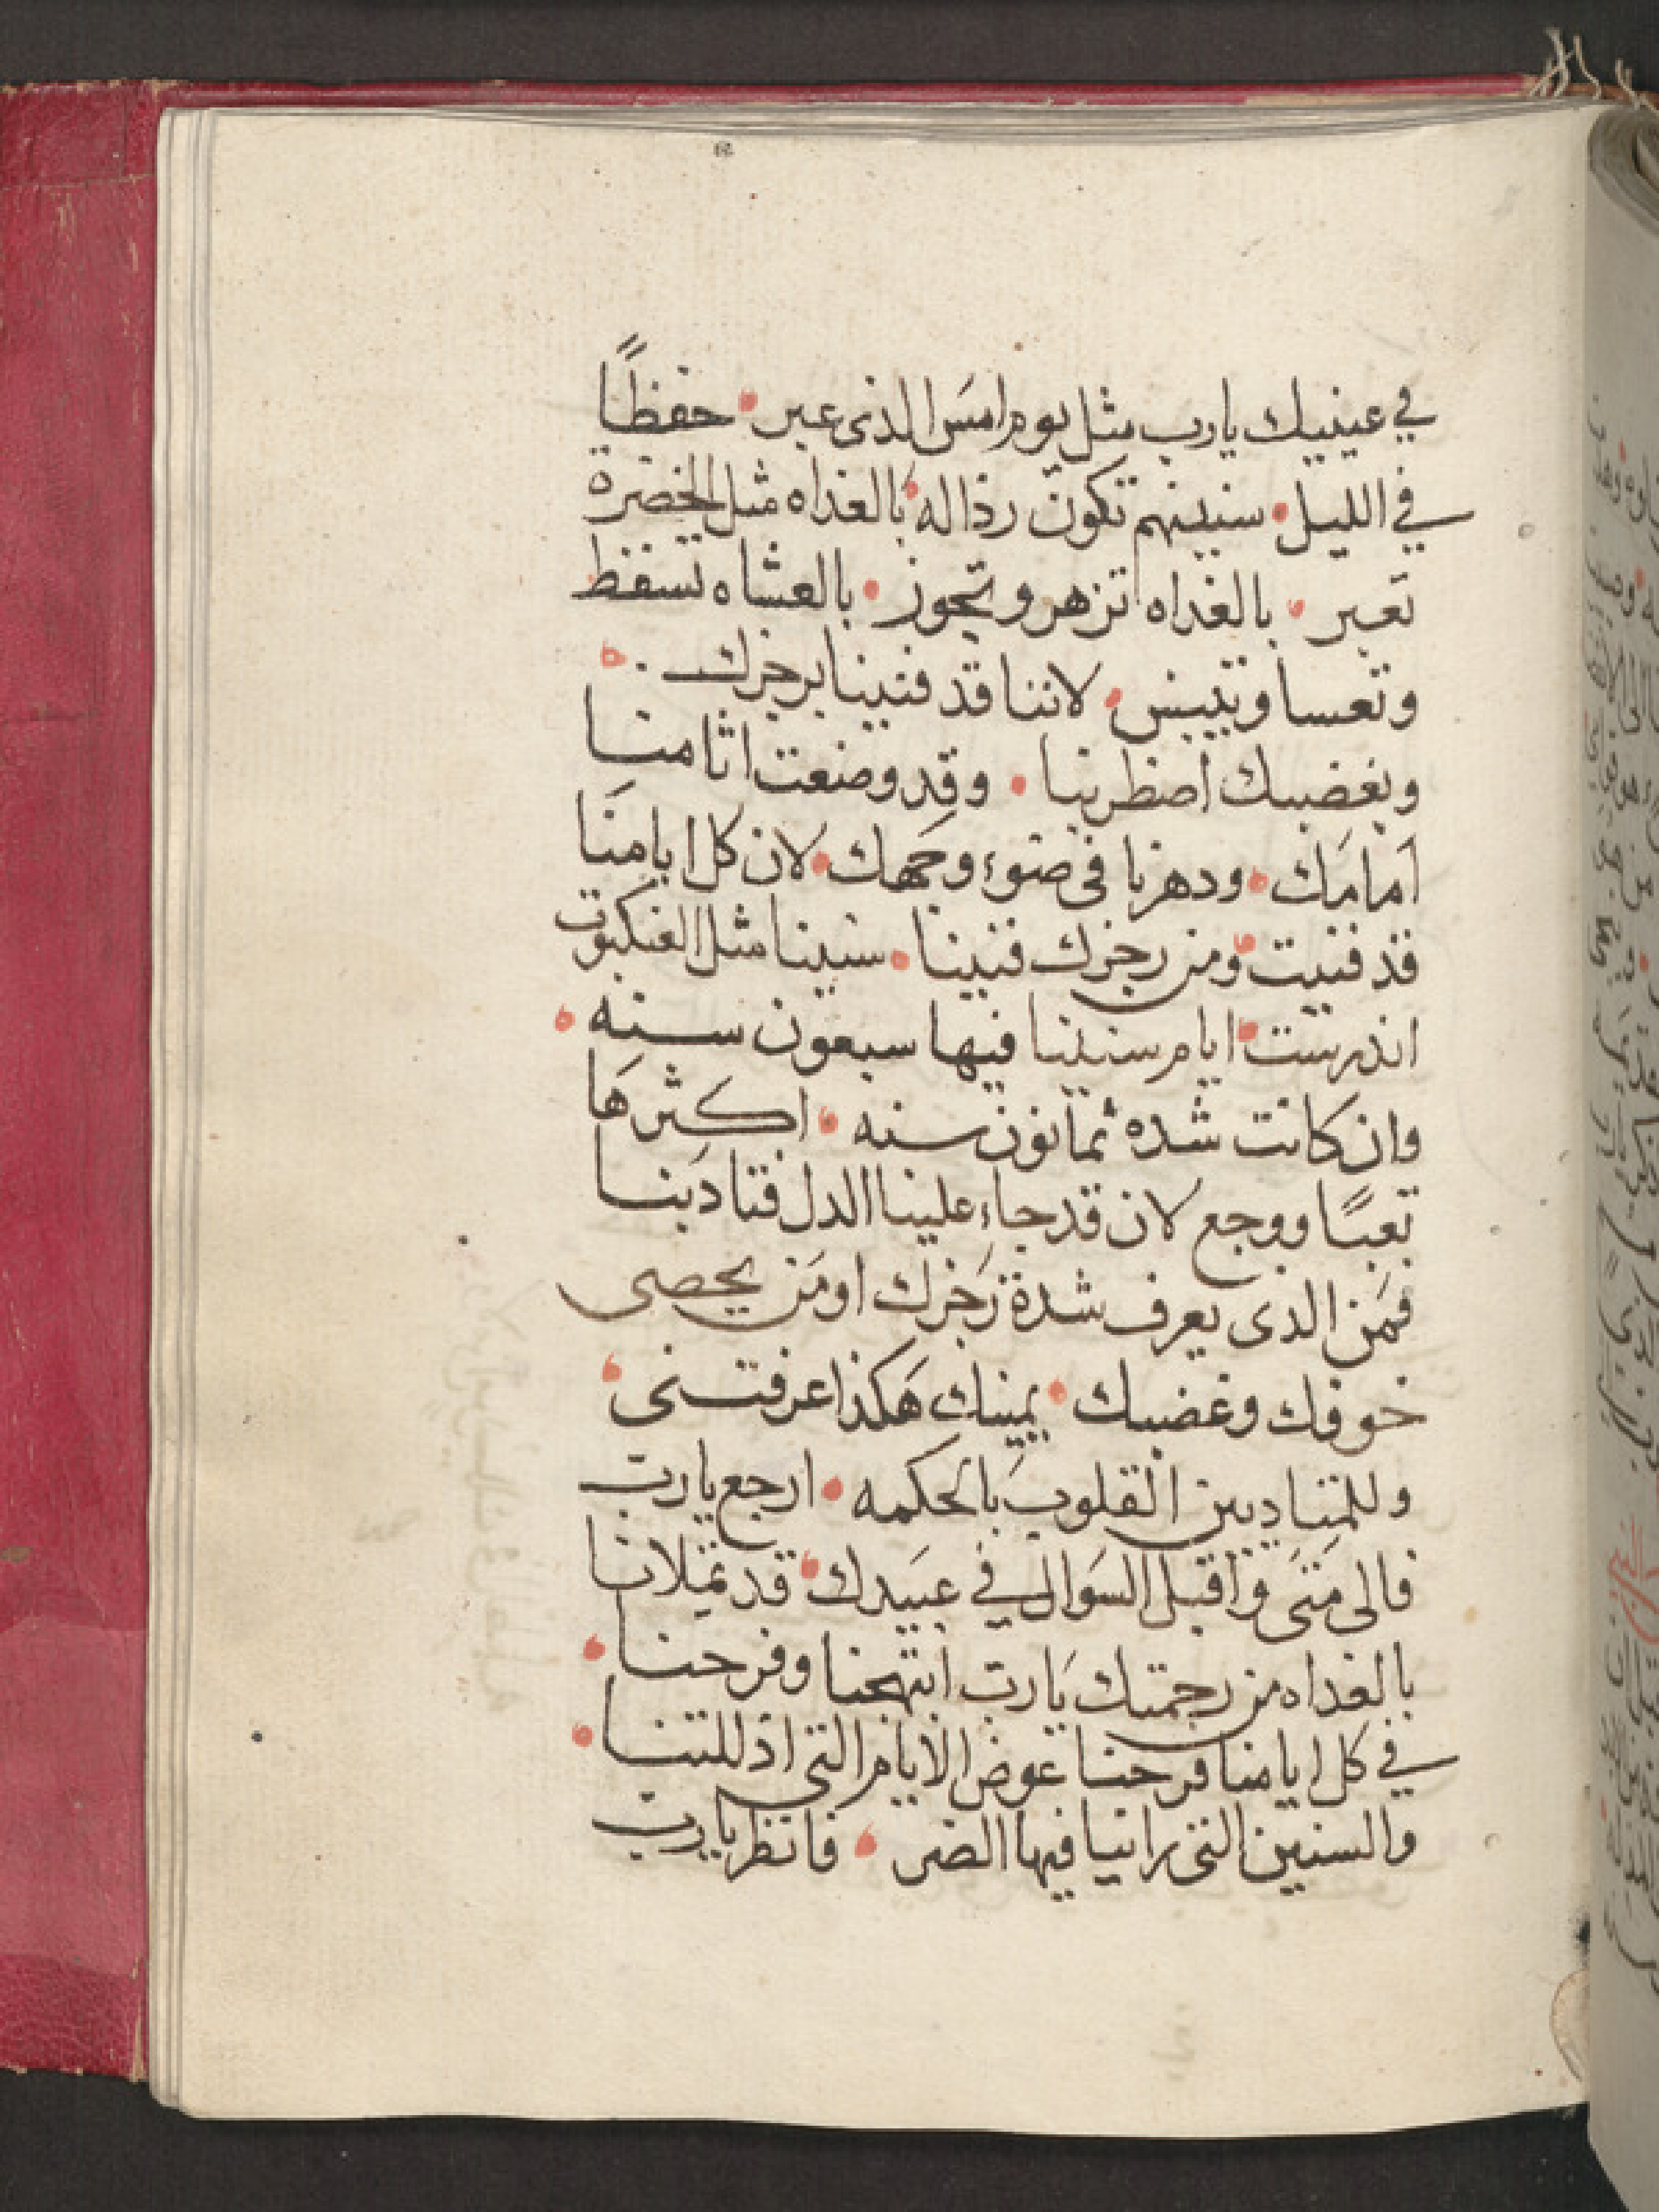 في عينيك يارب مثل يوم امس الذى عبر • حفظًا
في الليل • سنينهم تكون رذاله • بالغداه مثل الخضرة
تعبر • بالغداه تزهر وتجوز • بالعشاه تسقط
وتعسا وتيبس • لاننا قد فنينا برجزك •
وبغضبك اضطربنا • وقد وضعت اثامنا
امامك • ودهرنا فى ضوء وجهك • لان كل ايامنا
قد فنيت • ومن رجزك فنينا • سنينا مثل العنكبوت
اندرست • ايام سنينا فيها سبعون سنه •
وان كانت شده ثمانون سنه • اكثرها
تعبًا ووجع لان قد جاء علينا الدل فتادبنا
فمن الدى يعرف شدة رجزك او من يحصى
خوفك وغضبك • يمينك هكذا عرفتنى •
وللمتادبين القلوب بالحكمه • ارجع يارب
فالى متى واقبل السوال في عبيدك • قد تملانا
بالغداه من رحمتك يارب ابتهجنا وفرحنا •
في كل ايامنا فرحنا عوض الايام التى اذللتنا •
والسنين التى راينا فيها الضر • فانظر يارب